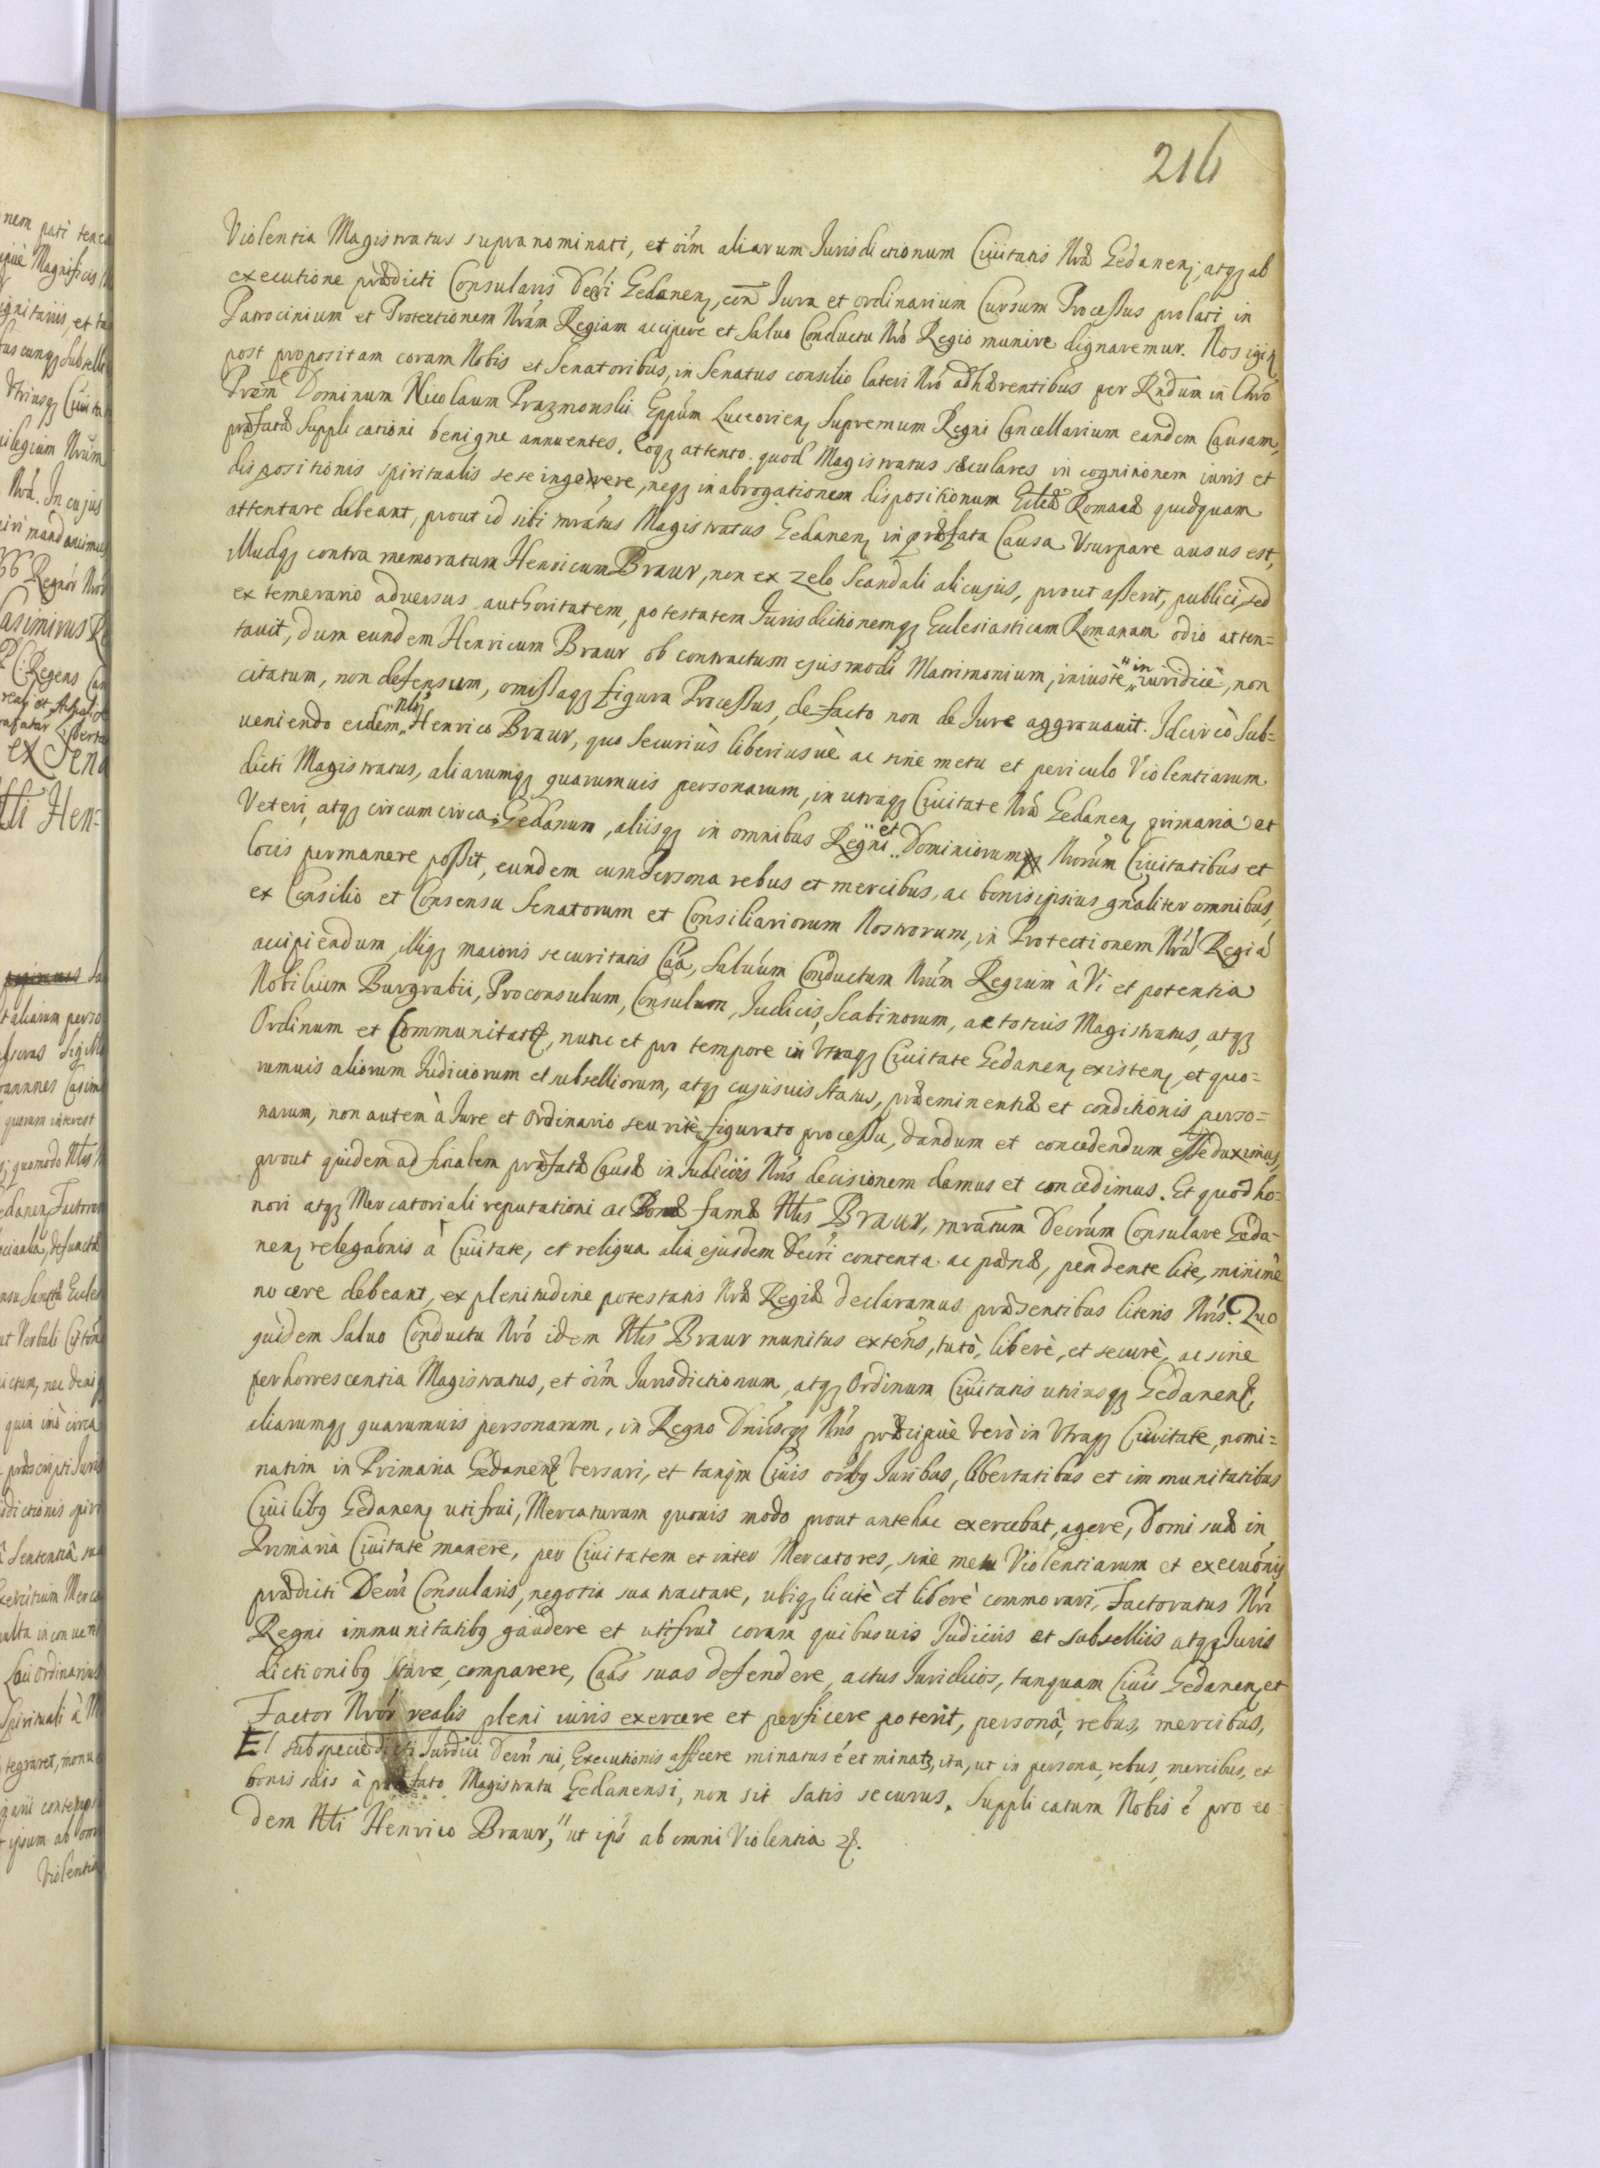 216
Violentia Magistratus supranominati, et oīm aliarum Jurisdictionum Civitatis Nrae Gedanen; atq; ab
executione praedicti Consularis Decri Gedanen, con Jura et ordinarium Cursum Processus prolati in
Patrocinium et Protectionem Nram Regiam accipere et Salvo Conductu Nro Regio munire dignaremur. Nos igir
post propositam coram Nobis et Senatoribus, in Senatus consilio lateri Nro adhaerentibus per Rndum in Chro
Prem Dominum Nicolaum Prazmouski Eppum Luceorien, Supremum Regni Cancellarium eandem Causam,
praefatae Supplicationi benigne annuentes. Eoq; attento quod Magistratus saeculares in cognitionem iuris et
dispositionis spiritualis sese ingerere, neq; in abrogationem dispositionum Eclae Romanae quidquam
attentare debeant, prout id sibi mratus Magistratus Gedanen, in praefata Causa Usurpare ausus est,
illudq; contra memoratum Henricum Braur, non ex zelo Scandali alicujus, prout asserit, publici, sed
ex temerario adversus authoritatem, potestatem Jurisdictionemq; Ecclesiasticam Romanam odio atten=
tavit, dum eundem Henricum Braur ob contractum ejusmodi Matrimonium, iniustè "in" iuridicè, non
citatum, non defensum, omissaq; figura Processus, de=facto non de Jure aggravavit. Idcircò Sub=
veniendo eidem "Nli" Henrico Braur, quo Securiùs liberiusvè ac sine metu et periculo Violentiarum
dicti Magistratus, aliarumq; quarumvis personarum, in utraq; Civitate Nra Gedanen, primaria et
Veteri, atq; circumcirca Gedanum, aliisq; in omnibus Regni "et" Dominiorum Nrorum Civitatibus et
locis permanere possit, eundem cum Persona rebus et mercibus, ac bonis ipsius gnaliter omnibus,
ex Consilio et Consensu Senatorum et Consiliariorum Nostrorum, in Protectionem Nram Regiā
accipiendum, illiq; maioris securitatis Caa, Salvum Conductum Nrum Regium à Vi et potentia
Nobilium Burgrabii, Proconsulum, Consulum, Judicis, Scabinorum, ac totius Magistratus, atq;
Ordinum et Communitatis, nunc et pro tempore in Utraq; Civitate Gedanen existen, et quo=
rumvis aliorum Judiciorum et subselliorum, atq; cujusvis status, praeeminentiae et conditionis perso=
narum, non autem à Jure et Ordinario seu ritè figurato processu, dandum et concedendum esse duximus,
prout quidem ad finalem praefatae Causae in Judiciis Nris decisionem damus et concedimus. Et quod ho=
nori atq; Mercatoriali reputationi ac Bonae famae Nlis Braur, mratum Decrum Consulare Geda=
nen, relegaōnis à Civitate, et reliqua alia ejusdem Decri contenta ac paenae, pendente lite, minimè
nocere debeant, ex plenitudine potestatis Nrae Regiae declaramus praesentibus literis Nris. Quo
quidem Salvo Conductu Nro idem Nlis Braur munitus extens, tutò, liberè, et securè, ac sine
perhorrescentia Magistratus, et oīm Jurisdictionum, atq; Ordinum Civitatis utriusq; Gedanen,
aliarumq; quarumvis personarum, in Regno Dniisq; Nris praecipuè verò in Utraq; Civitate, nomi=
natim in Primaria Gedanen, versari, et tanqm Civis oībq Juribus, libertatibus et immunitatibus
Civilibq Gedanen, uti frui, Mercaturam quovis modo prout antehac exercebat, agere, Domi suae in
Primaria Civitate manere, per Civitatem et inter Mercatores, sine metu Violentiarum et executionis
praedicti Decri Consularis, negotia sua tractare, ubiq; licitè et liberè commorari, Factoratus Nri
Regni immunitatibq gaudere et uti frui coram quibusvis Judiciis et subselliis atq; Juris
dictionibq stare, comparere, Caas suas defendere, actus Juridicos, tanquam Civis Gedanen, et
Factor Nror realis pleni iuris exercere et perficere poterit, personâ, rebus, mercibus,
Et sub specie dicti Juridici Decri sui, Executionis afficere minatus é et minatr, ita, ut in persona, rebus, mercibus, et
bonis suis à praefato Magistratu Gedanensi, non sit Satis securus. Supplicatum Nobis é pro eo=
dem Nli Henrico Braur, " ut ips ab omni Violentia etc.